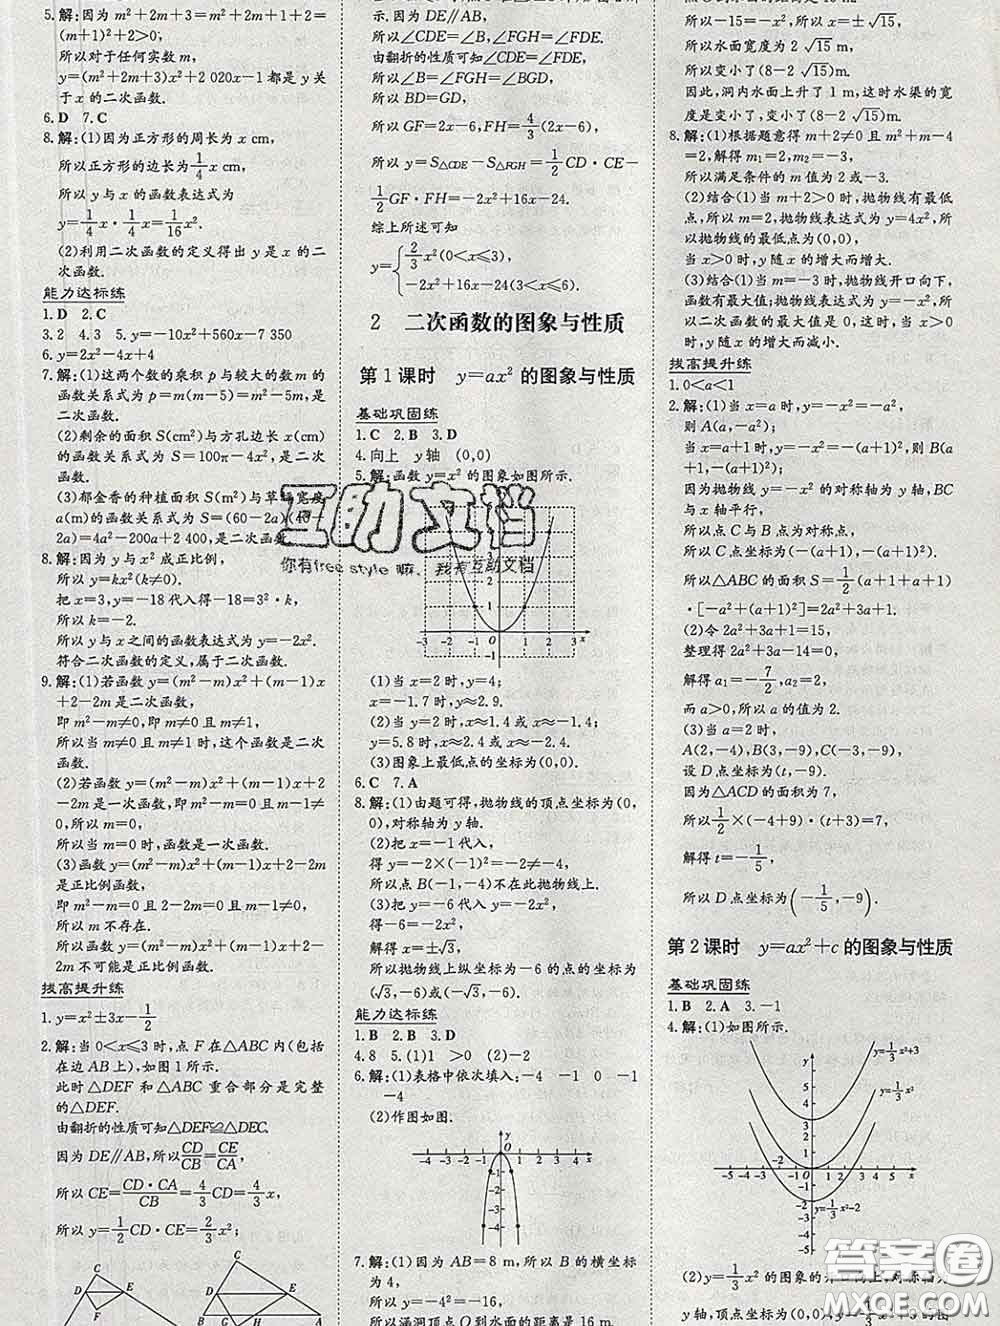 5.解:m²+2m+3=m²+2m+1+2=
(m+1)²+2>0,
所以对于任何实数m,
y=(m²+2m+3)x²+2 020x-1都是y关
于x的二次函数.
6.D 7.C
8.解:(1)因为正方形的周长为x cm,
所以正方形的边长为1/4 x cm,
所以y与x的函数表达式为
y=1/4 x·1/4 x=1/16 x².
(2)利用二次函数的定义得出y是x的二
次函数.
能力达标练
1.D 2.C
3.2 4.3 5.y=-10x²+560x-7 350
6.y=2x²-4x+4
7.解:(1)这两个数的乘积p与较大的数m的
函数关系式为p=m(m-5)=m²-5m,
是二次函数.
(2)剩余的面积S(cm²)与方孔边长x(cm)
的函数关系式为S=100π-4x²,是二次
函数.
(3)郁金香的种植面积S(m²)与草坪宽度
a(m)的函数关系式为S=(60-2a)(40-
2a)=4a²-200a+2 400,是二次函数.
8.解:因为y与x²成正比例,
所以y=kx²(k≠0).
把x=3,y=-18代入得-18=3²·k,
所以k=-2.
所以y与x之间的函数表达式为y=-2x².
符合二次函数的定义,属于二次函数.
9.解:(1)若函数y=(m²-m)x²+(m-1)
x+2-2m是二次函数,
即m²-m≠0,即m≠0且m≠1,
所以当m≠0且m≠1时,这个函数是二次
函数.
(2)若函数y=(m²-m)x²+(m-1)x+2-
2m是一次函数,即m²-m=0且m-1≠0,
所以m=0,
所以当m=0时,函数是一次函数.
(3)函数y=(m²-m)x²+(m-1)x+2-2m
是正比例函数,
则m²-m=0且2-2m=0且m-1≠0,
所以m不存在.
所以函数y=(m²-m)x²+(m-1)x+2-
2m不可能是正比例函数.
拔高提升练
1.y=x²±3x-1/2
2.解:当0<x≤3时,点F在△ABC内(包括
在边AB上),如图1所示.
此时△DEF和△ABC重合部分是完整
的△DEF.
由翻折的性质可知△DEF≌△DEC.
因为DE∥AB,所以CD/CB=CE/CA,
所以CE=CD·CA/CB=4/3 CD=4/3 x,
所以y=1/2 CD·CE=2/3 x²;
C
D
E
F
C
D
E
因为DE∥AB,
所以∠CDE=∠B,∠FGH=∠FDE.
由翻折的性质可知∠CDE=∠FDE,
所以∠B=∠FGH=∠BGD,
所以BD=GD,
所以GF=2x-6,FH=4/3(2x-6),
所以y=S△CDE-S△FGH=1/2 CD·CE-
1/2 GF·FH=-2x²+16x-24.
综上所述可知
y={2/3 x²(0<x≤3),
-2x²+16x-24(3<x<6).
2 二次函数的图象与性质
第1课时 y=ax²的图象与性质
基础巩固练
1.C 2.B 3.D
4.向上 y轴 (0,0)
5.解:函数y=x²的图象如图所示.
3
2
1
-3 -2 -1 O 1 2 3 x
-1
(1)当x=2时,y=4;
x=-1.7时,y≈2.9.
(2)当y=2时,x≈1.4或x≈-1.4;
y=5.8时,x≈2.4或x≈-2.4.
(3)图象上最低点的坐标为(0,0).
6.C 7.A
8.解:(1)由题可得,抛物线的顶点坐标为(0,
0),对称轴为y轴.
(2)把x=-1代入,
得y=-2×(-1)²=-2≠-4,
所以点B(-1,-4)不在此抛物线上.
(3)把y=-6代入y=-2x²,
得-6=-2x²,
解得x=±√3,
所以抛物线上纵坐标为-6的点的坐标为
(√3,-6)或(-√3,-6).
能力达标练
1.B 2.B 3.D
4.8 5.(1)1 >0 (2)-2
6.解:(1)表格中依次填入:-4 -1 0 -1
-4
(2)作图如图.
y
-4 -3 -2 -1 O 1 2 3 4 x
-1
-2
-3
-4
7.解:(1)因为AB=8 m,所以B的横坐标
为4,
所以y=-4²=-16,
所以涵洞顶点O到水面的距离是16 m.
所以-15=-x²,所以x=±√15,
所以水面宽度为2√15 m.
所以变小了(8-2√15)m.
因此,洞内水面上升了1 m,这时水渠的宽
度是变小了,变小了(8-2√15)m.
8.解:(1)根据题意得m+2≠0且m²+m-4
=2,解得m₁=2,m₂=-3,
所以满足条件的m值为2或-3.
(2)结合(1)当m+2>0时,抛物线有最低
点,所以m=2,抛物线表达式为y=4x²,
所以抛物线的最低点为(0,0),
当x>0时,y随x的增大而增大.
(3)结合(1)当m=-3时,抛物线开口向下,
函数有最大值;抛物线表达式为y=-x²,所
以二次函数的最大值是0,这时,当x>0
时,y随x的增大而减小.
拔高提升练
1.0<a<1
2.解:(1)当x=a时,y=-x²=-a²,
则A(a,-a²).
当x=a+1时,y=-x²=-(a+1)²,则B(a
+1,-(a+1)²).
因为抛物线y=-x²的对称轴为y轴,BC
与x轴平行,
所以点C与B点为对称点,
所以C点坐标为(-(a+1),-(a+1)²).
所以△ABC的面积S=1/2(a+1+a+1)
·[-a²+(a+1)²]=2a²+3a+1.
(2)令2a²+3a+1=15,
整理得2a²+3a-14=0,
解得a₁=-7/2,a₂=2,
而a>0,所以a的值为2.
(3)当a=2时,
A(2,-4),B(3,-9),C(-3,-9).
设D点坐标为(t,-9).
因为△ACD的面积为7,
所以1/2×(-4+9)·(t+3)=7,
解得t=-1/5,
所以D点坐标为(-1/5,-9).
第2课时 y=ax²+c的图象与性质
基础巩固练
1.B 2.A 3.-1
4.解:(1)如图所示.
y=1/3 x²+3
y=1/3 x²
y=1/3 x²-2
-5 -4 -3 -2 -1 O 1 2 3 4 5 x
(2)y=1/3 x²的图象的开口向上,对称轴为
y轴,顶点坐标为(0,0);
互助文档
你有free style嘛,我有互助文档
答案圈
MXQE.COM